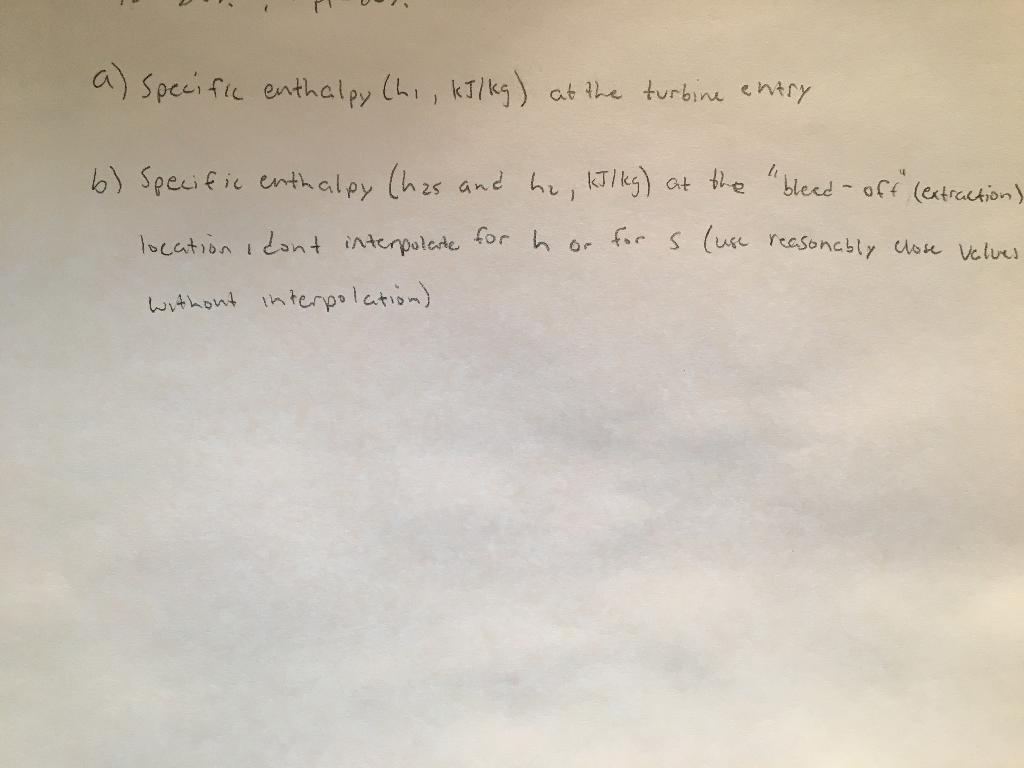 a) Specific enthalpy (h1, kJ/kg) at the turbine entry
b) Specific enthalpy (h2s and h2, kJ/kg) at the "bleed-off" (extraction)
location, dont interpolate for h or for s (use reasonably close values
without interpolation)